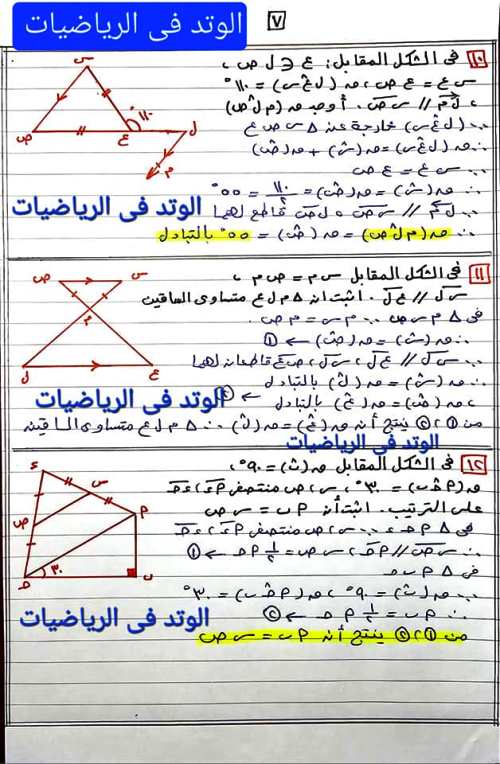 الوتد فى الرياضيات
٧
١٠ فى الشكل المقابل: ع ∈ ل ص،
س ع = ع ص، ق(ل ع س) = ١١٠°
، ل م // س ص. أوجد ق(م ل ص)
∵ (ل ع س) خارجة عن △ س ص ع
∴ ق(ل ع س) = ق(س) + ق(ص)
∵ س ع = ع ص
∴ ق(س) = ق(ص) = ١١٠/٢ = ٥٥°
∵ ل م // س ص، ل ص قاطع لهما
∴ ق(م ل ص) = ق(ص) = ٥٥° بالتبادل
س
١١٠°
ص
ع
ل
م
الوتد فى الرياضيات
١١ فى الشكل المقابل س م = ص م،
س ص // ع ل. اثبت ان △ م ل ع متساوى الساقين
فى △ م س ص ∵ م س = م ص
∴ ق(س) = ق(ص) ← ①
∵ س ص // ع ل، س ل، ص ع قاطعان لهما
∴ ق(س) = ق(ل) بالتبادل
، ق(ص) = ق(ع) بالتبادل ← ②
من ①، ② ينتج أن ق(ع) = ق(ل) ∴ △ م ل ع متساوى الساقين
ص
س
م
ل
ع
الوتد فى الرياضيات
الوتد فى الرياضيات
١٢ فى الشكل المقابل ق(ب) = ٩٠°،
ق(أ ح ب) = ٣٠°، س، ص منتصفى أ ء، ء ح
على الترتيب. اثبت أن أ ب = س ص
فى △ أ ح ء ∵ س، ص منتصفى أ ء، ء ح
∴ س ص // أ ح، س ص = ١/٢ أ ح ← ①
فى △ أ ب ح
∵ ق(ب) = ٩٠°، ق(أ ح ب) = ٣٠°
∴ أ ب = ١/٢ أ ح ← ②
من ①، ② ينتج أن أ ب = س ص
ء
س
ص
أ
٣٠°
ح
ب
الوتد فى الرياضيات